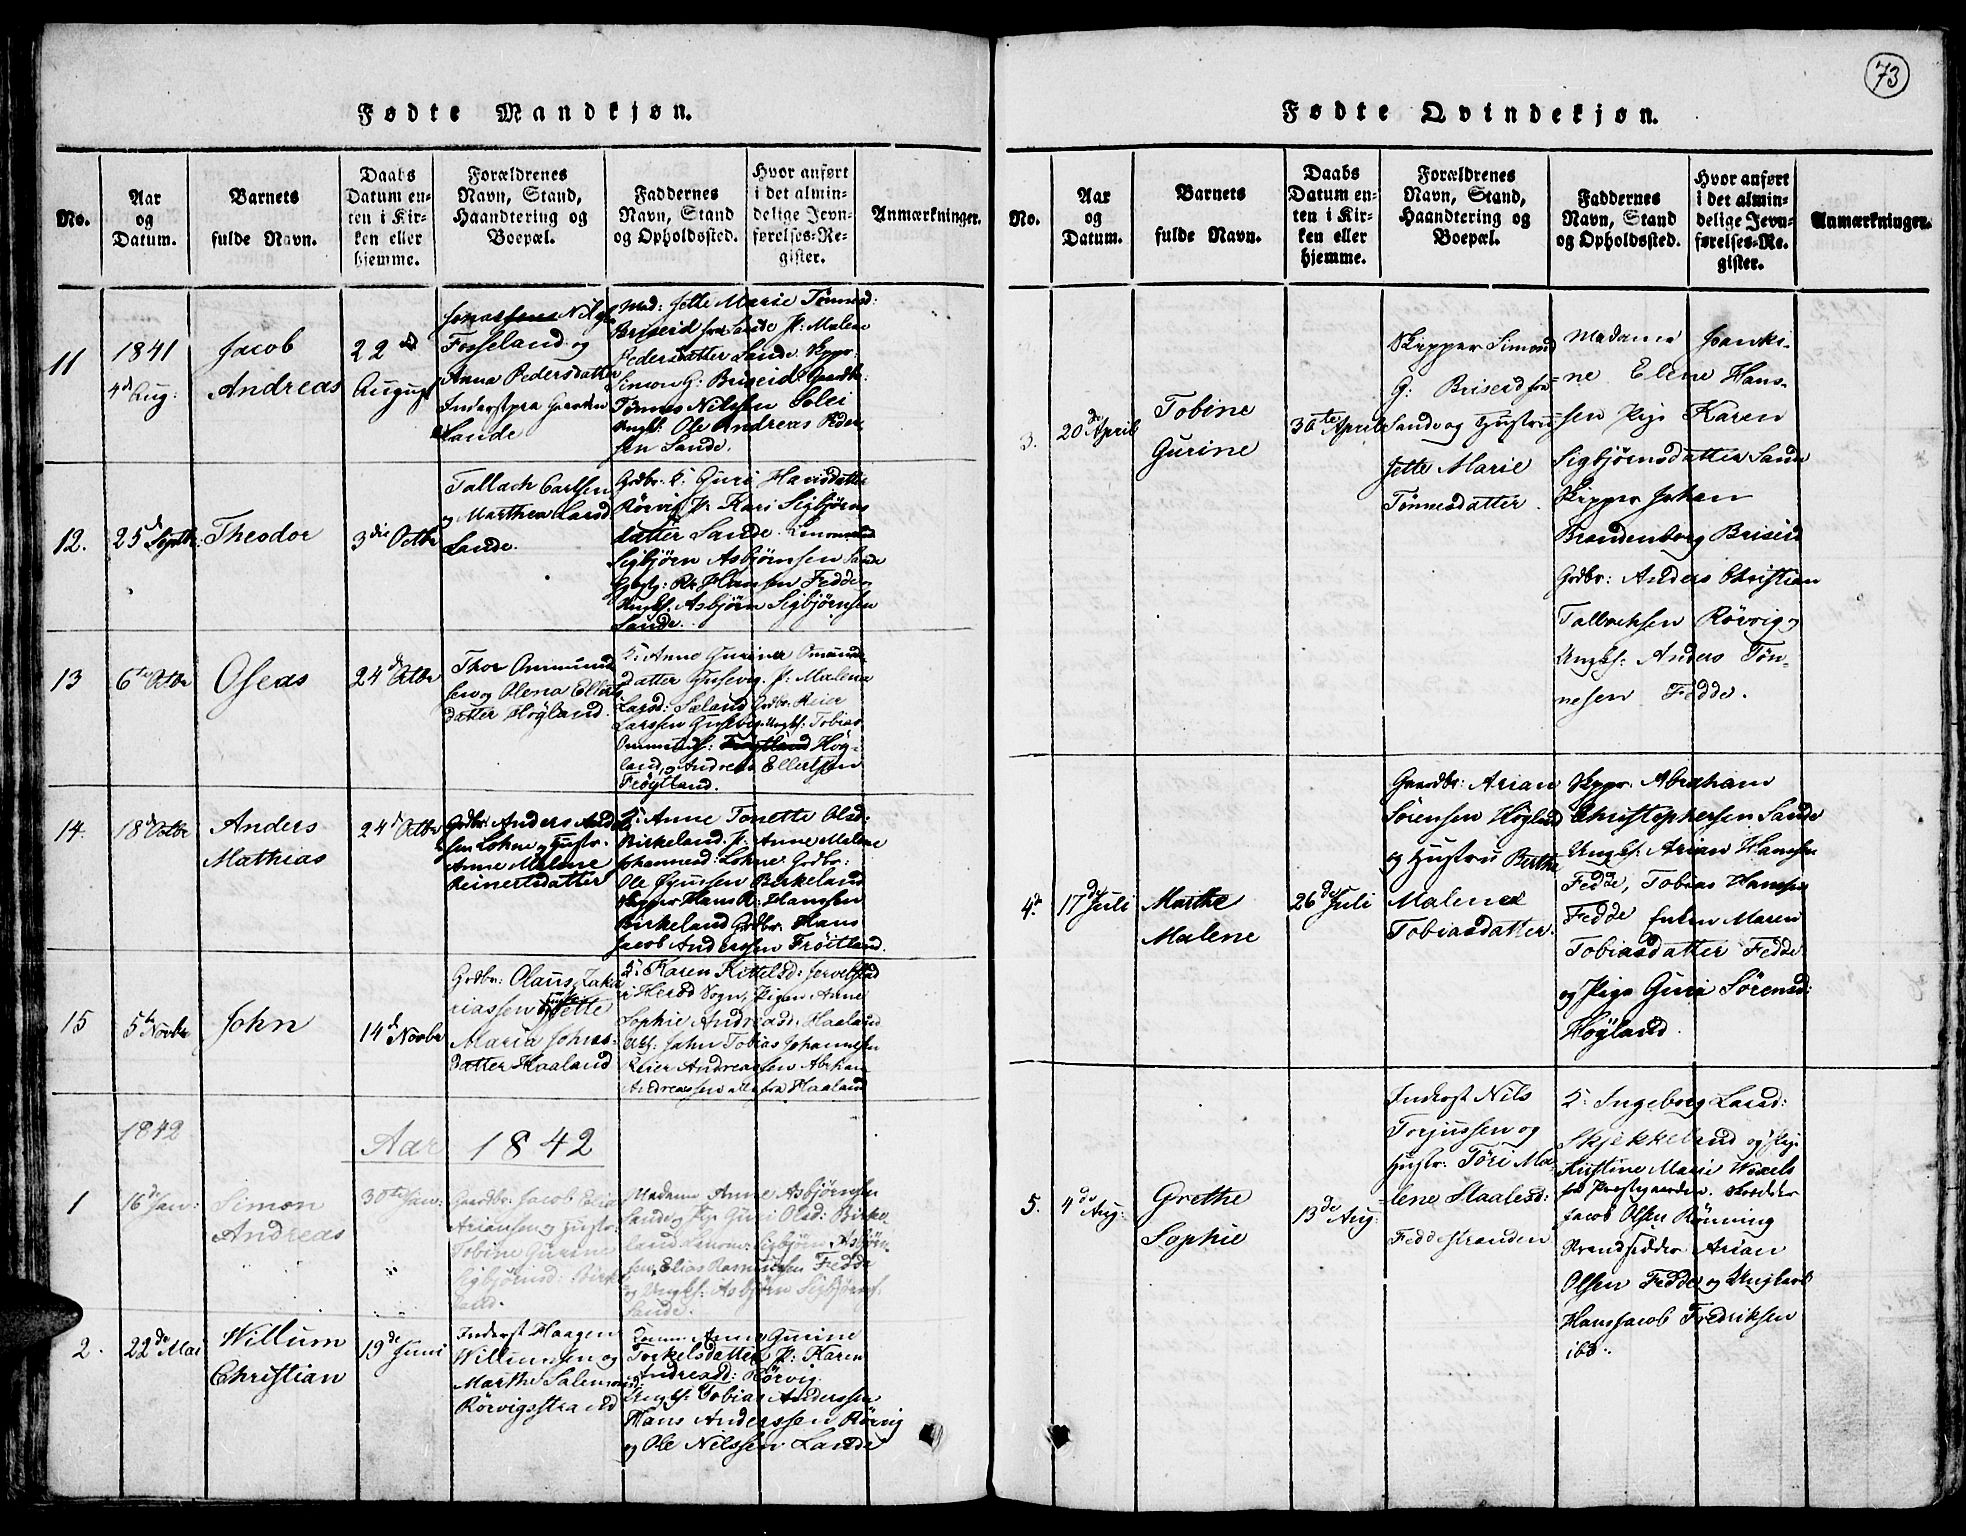 73
Fødte Mandkjøn.
No.
Aar
og
Datum.
Barnets
fulde Navn.
Daabs
Datum en-
ten i Kir-
ken eller
hjemme.
Forældrenes
Navn, Stand,
Haandtering og
Boepæl.
Faddernes
Navn, Stand
og Opholdssted.
Hvor anført
i det almin-
delige Jevn-
førelses-Re-
gister.
Anmærkninger.
11
1841
4de Aug:
Jacob
Andreas
22de
August
Nils
Fosseland og
Anna Pedersdatter
Inderst paa Gaarden
Sande
Mad: Jette Marie Tønnesd:
Briseid fra Sande P: Malene
Pedersdatter Sande. Skppr:
Simon G: Briseid Gaardb:
Tønnes Nilssen Solei
Ungk: Ole Andreas Peder-
sen Sande.
12.
25de Septbr:
Theodor
3die Octbr
Tallach Carlsen
og Marthea Larsd
Sande.
Grdbr. K: Guri Hansdatter
Rörvig P: Kari Sigbjörns
datter Sande.
Sigbjörn Asbjörnsen Sande
Hanssen Fedde og
Ungkf: Asbjörn Sigbjörnsen
Sande.
13
6te Octbr
Oseas
24de Octbr
Thor Ommund
sen og Olena Ellerts
datter Høyland.
K: Anne Gurine Omunds-
datter Gusevig. P: Malena
Larsd: Sæland Grdbr: Reier
Larssen Gusevig. Ungkf: Tobias
Ommunds: Frøytland Høy-
land, og Andreas Ellertsen
Frøytland.
14.
18de Octbr
Anders
Mathias
24de Octbr
Grdbr: Anders And-
sen Lohne og Hustr.
Anne Malene
Reinertsdatter
K: Anne Tonette Olsd:
Birkeland. P: Anne Malene
Johannesd: Lohne. Grdbr:
Ole Gjussen Birkeland
Skipper Hans R: Hanssen
Birkeland Grdbr: Hans
Jacob Anderssen Frøitland.
15
5te Novbr
John
14de Novbr
Grdbr: Olaus Zaka
riassen og Hustr Jette
Maria Johns-
datter Haaland
K: Karen Kittelsd: Jervelstad
i Herød Sogn, Pigen Anne
Sophie Andreasd: Haaland
Ukf: Jahn Tobias Johannesen
Reier Andreassen Abrham
Andreassen alle fra Haaland
1842
Aar 1842
1
16de Jan:
Simon
Andreas
30te Jan:
Gaardbr: Jacob Elias
Ariansen og Hustr.
Tobine Gurine
Sigbjörnsd: Birke-
land.
Madame Anne Asbjörnsen
Sande og Pige Guri Olsd: Birke-
land Sigbjörn Asbjörn-
sen, Elias Rasmussen Fedde
og Ungkf: Asbjörn Sigbjörnsf.
Sande.
2.
22de Mai
Willum
Christian
19de Juni
Inderst Haagen
Willumsen og
Marthe Salemonsd:
Rörvigsstrand
Anna Gurine
Torkelsdatter P: Karen
Andreasd: Rörvig.
Ungkf: Tobias Anderssen
Hans Anderssen Rörvig
og Ole Nilssen Sande
Fødte Qvindekjøn.
No.
Aar
og
Datum.
Barnets
fulde Navn.
Daabs
Datum en-
ten i Kir-
ken eller
hjemme.
Forældrenes
Navn, Stand,
Haandtering og
Boepæl.
Faddernes
Navn, Stand
og Opholdssted.
Hvor anført
i det almin-
delige Jevn-
førelses-Re-
gister.
Anmærkninger.
3.
20de April
Tobine
Gurine
30te April
Skipper Simond
G: Briseid fra
Sande og Hustru
Jette Marie
Tönnesdatter.
Madame Janki-
ne Elene Hans-
sen Pige Karen
Sigbjörnsdatter Sande
Skipper Johan
Brandenborg Briseid
Grdbr: Anders Christian
Tallachsen Rörvig og
Ungkf: Anders Tön-
nesen Fedde.
4de
17de Juli
Marthe
Malene
26de Juli
Gaardbr: Arian
Sörensen Höyland
og Hustru Berthe
Malene
Tobiasdatter.
Skppr. Abraham
Christophersen Sande
Ungkf: Arian Hanssen
Fedde, Tobias Hanssen
Fedde Enken Maren
Tobiasdatter Fedde
og Pige Guri Sörensd:
Höyland.
5.
4de Aug:
Grethe
Sophie
13de Aug:
Inderst Nils
Torjussen og
Hustr: Töri Ma-
lene Staalesd:
Feddestranden
K: Ingeborg Larsd:
Skjekkeland og Pige
Kristine Marie Wixels
paa Præstegaarden.
Jacob Olsen Rönning
Strandsidder Arian
Olsen Fedde og Ungkarl
Hans Jacob Fredriksen
ibd.